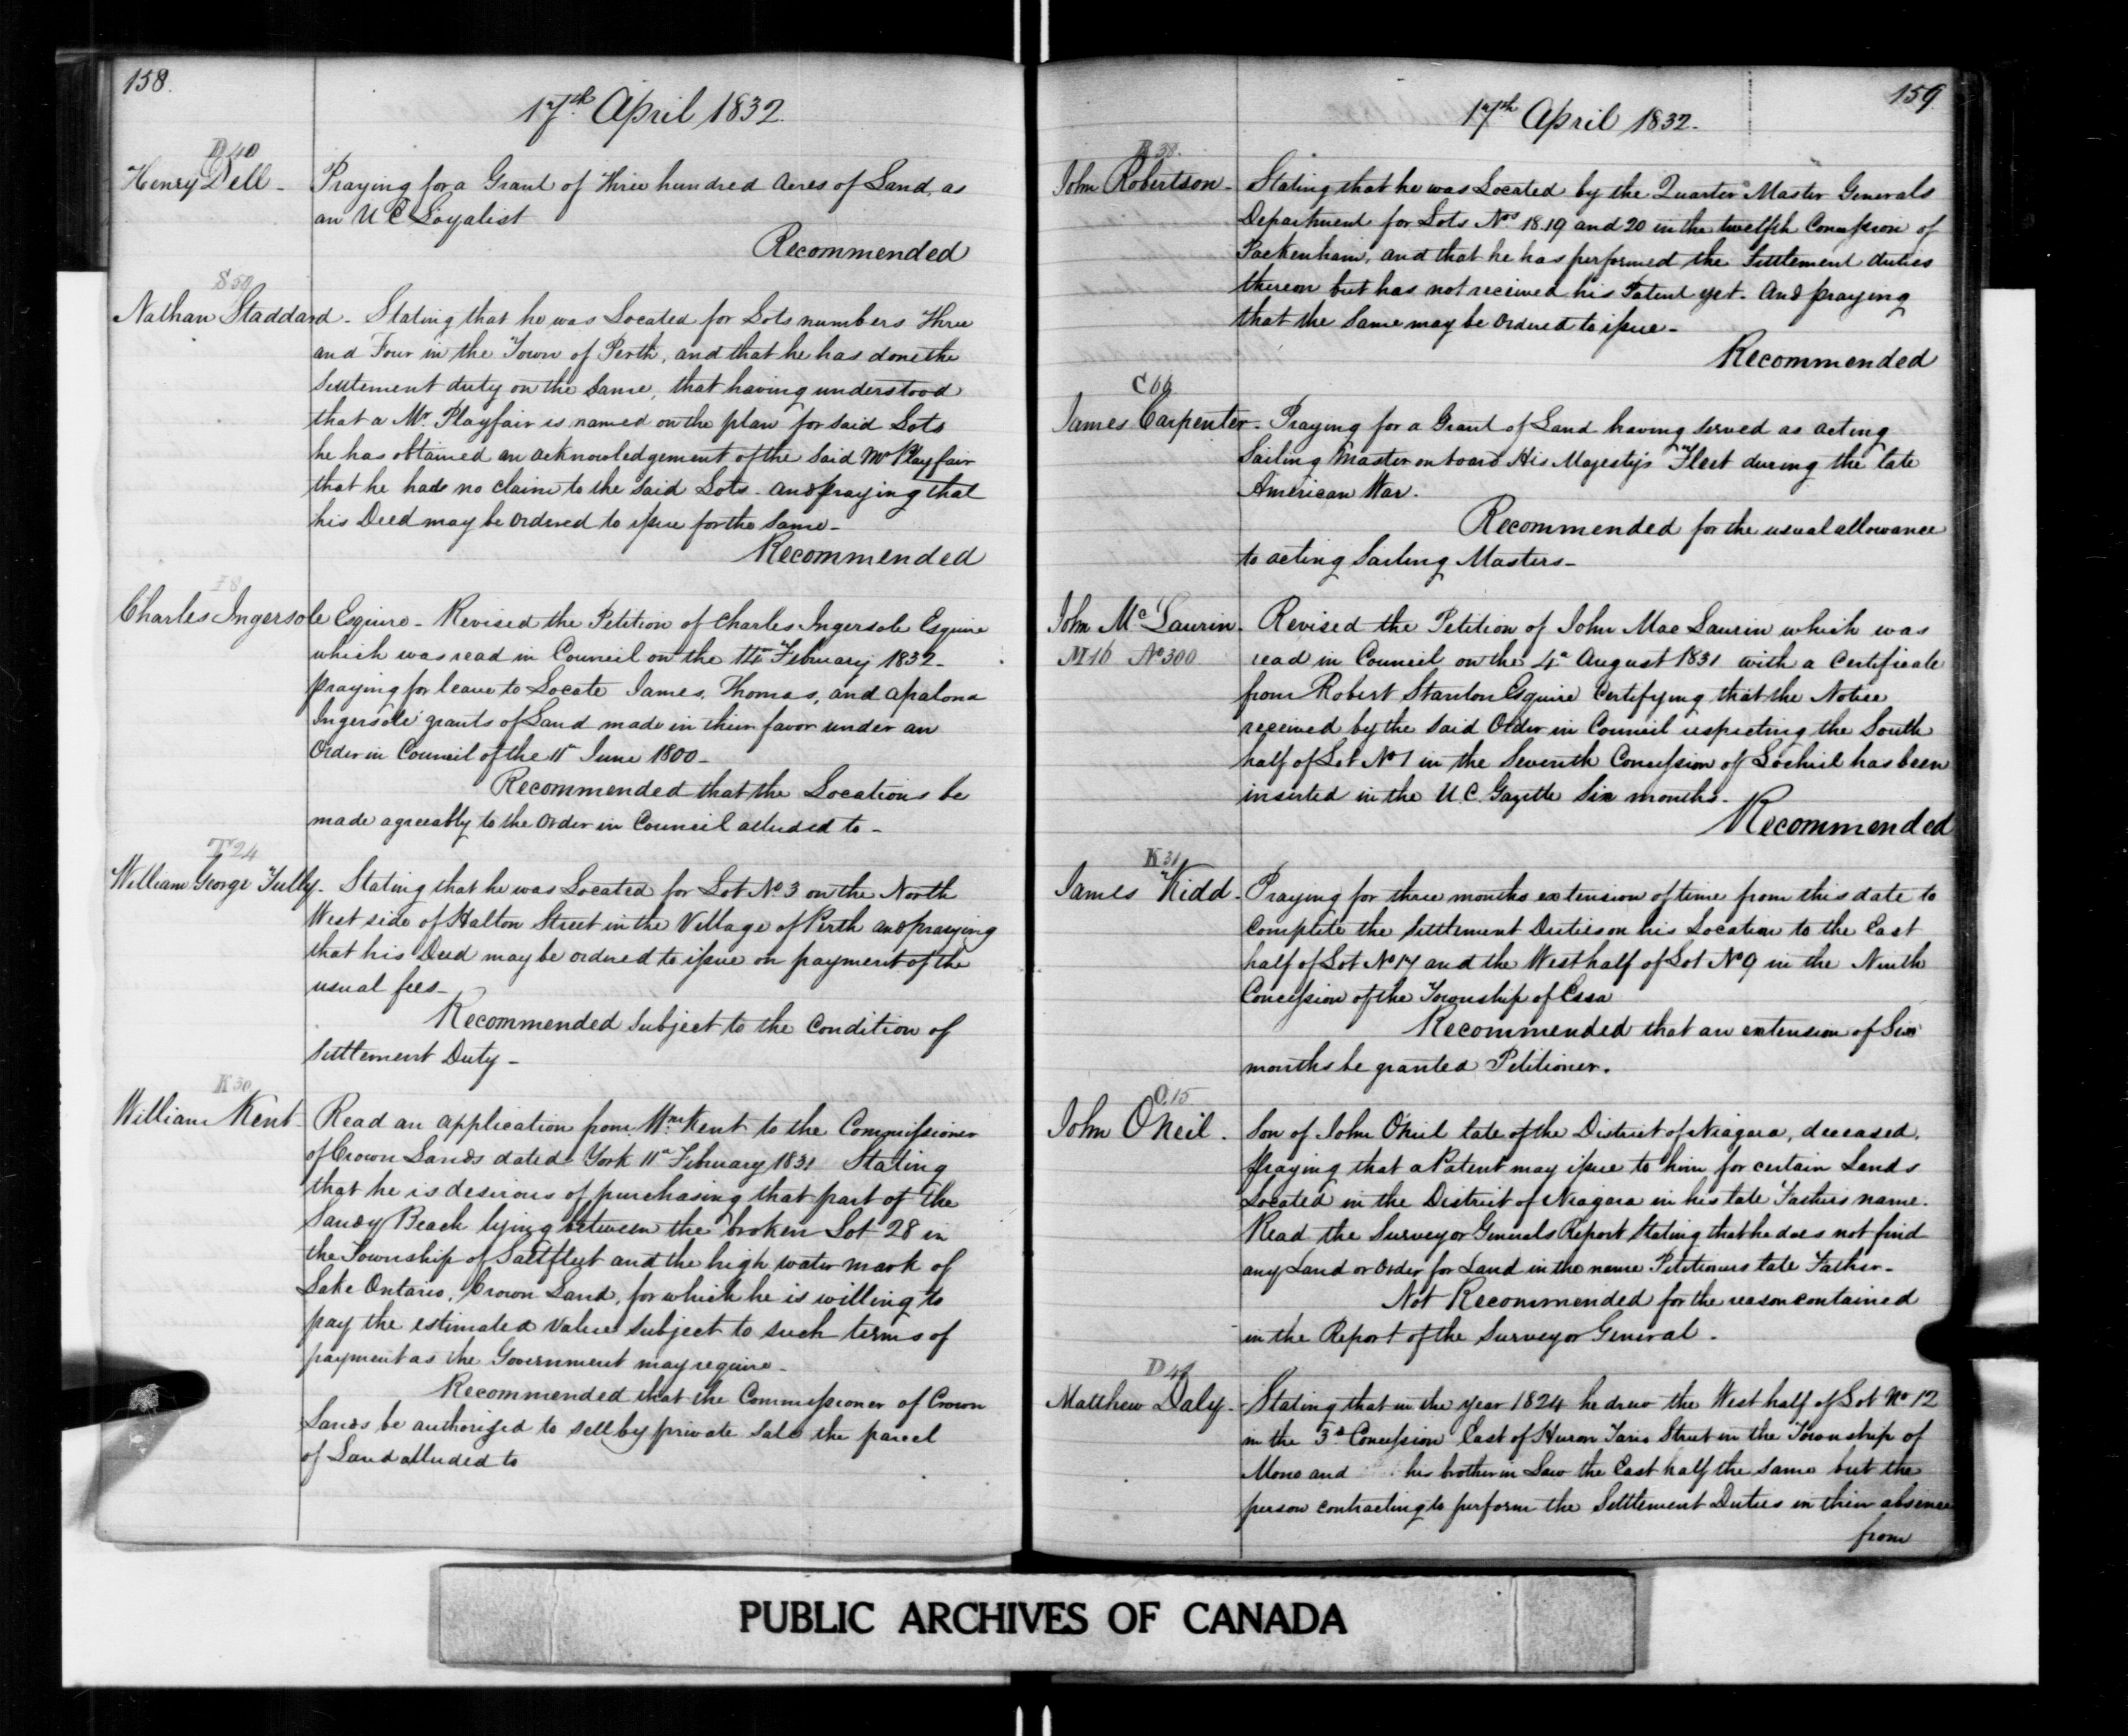 158.
17th April 1832.
D 40
Henry Dell - Praying for a Grant of Three hundred Acres of Land, as
an U C Loyalist
Recommended
S 50
Nathan Staddard - Stating that he was Located for Lots numbers Three
and Four in the Town of Perth, and that he has done the
Settlement duty on the Same, that having understood
that a Mr. Playfair is named on the plan for said Lots
he has obtained an acknowledgement of the Said Mr Playfair
that he has no claim to the Said Lots - and praying that
his Deed may be ordered to issue for the Same -
Recommended
I 8
Charles Ingersole Esquire - Revised the Petition of Charles Ingersole Esquire
which was read in Council on the 14th February 1832 -
praying for leave to Locate James, Thomas, and Apalona
Ingersole grants of Land made in their favor under an
Order in Council of the 11th June 1800 -
Recommended that the Locations be
made agreeably to the Order in Council alluded to -
T 24
William George Tully - Stating that he was Located for Lot No. 3 on the North
West side of Halton Street in the Village of Perth and praying
that his Deed may be ordered to issue on payment of the
usual fees -
Recommended Subject to the Condition of
Settlement Duty -
K 30
William Kent - Read an application from Wm. Kent to the Commissioner
of Crown Lands dated York 11th February 1831 Stating
that he is desirous of purchasing that part of the
Sandy Beach lying between the broken Lot 28 in
the Township of Saltfleet and the high water mark of
Lake Ontario, Crown Land, for which he is willing to
pay the estimated Value Subject to such terms of
payment as the Government may require -
Recommended that the Commissioner of Crown
Lands be authorized to sell by private Sale the parcel
of Land alluded to
159.
17th April 1832.
R 38.
John Robertson - Stating that he was Located by the Quarter Master Generals
Department for Lots Nos 18.19 and 20 in the twelfth Concession of
Packenham, and that he has performed the Settlement duties
thereon but has not received his Patent yet - And praying
that the Same may be ordered to issue -
Recommended
C 66
James Carpenter - Praying for a Grant of Land having Served as acting
Sailing Master on board His Majesty's Fleet during the late
American War.
Recommended for the usual allowance
to acting Sailing Masters -
John McLaurin - Revised the Petition of John Mac Laurin which was
M 16 No 300 read in Council on the 4th August 1831 with a Certificate
from Robert Stanton Esquire Certifying that the Notice
received by the said Order in Council respecting the South
half of Lot No 1 in the Seventh Concession of Lochiel has been
inserted in the U C. Gazette Six months -
Recommended
K 31
James Kidd - Praying for three months extension of time from this date to
Complete the Settlement Duties on his Location to the East
half of Lot No 17 and the West half of Lot No 9 in the Ninth
Concession of the Township of Essa
Recommended that an extension of Six
months be granted Petitioner.
O. 15
John O'Neil - Son of John O'Neil late of the District of Niagara, deceased,
Praying that a Patent may issue to him for certain Lands
Located in the District of Niagara in his late Fathers name.
Read the Surveyor Generals Report Stating that he does not find
any Land or Order for Land in the name Petitioners late Father -
Not Recommended for the reason contained
in the Report of the Surveyor General -
Matthew Daly - Stating that in the year 1824 he drew the West half of Lot No 12
in the 3d Concession East of Huron Street in the Township of
Mono and his brother in Law the East half the same but the
person contracting to perform the Settlement Duties in their absence
from
PUBLIC ARCHIVES OF CANADA